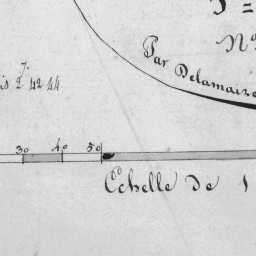 N°
Par Delamaize
is 2 42 44
30 40 50
Echelle de 1